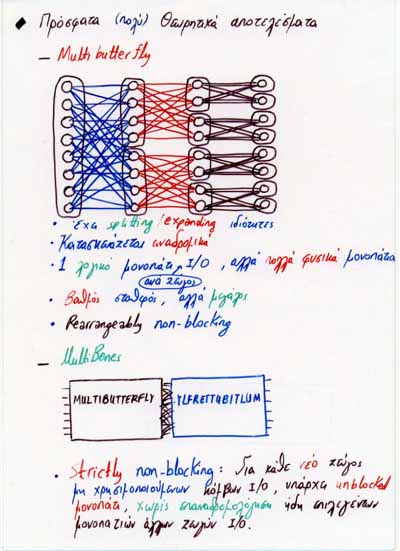 Πρόσφατα (πολύ) Θεωρητικά αποτελέσματα
— Multibutterfly
• Έχει splitting/expanding ιδιότητες
• Κατασκευάζεται αναδρομικά
• 1 λογικό μονοπάτι I/O, αλλά πολλά φυσικά μονοπάτια
ανά ζεύγος
• Βαθμός σταθερός, αλλά μεγάλος
• Rearrangeably non-blocking
— MultiBenes
MULTIBUTTERFLY YLFRETTUBITLUM
• Strictly non-blocking: Για κάθε νέο ζεύγος
μη χρησιμοποιούμενων κόμβων I/O, υπάρχει unblocked
μονοπάτι, χωρίς επαναδρομολόγηση ήδη επιλεγέντων
μονοπατιών άλλων ζευγών I/O.